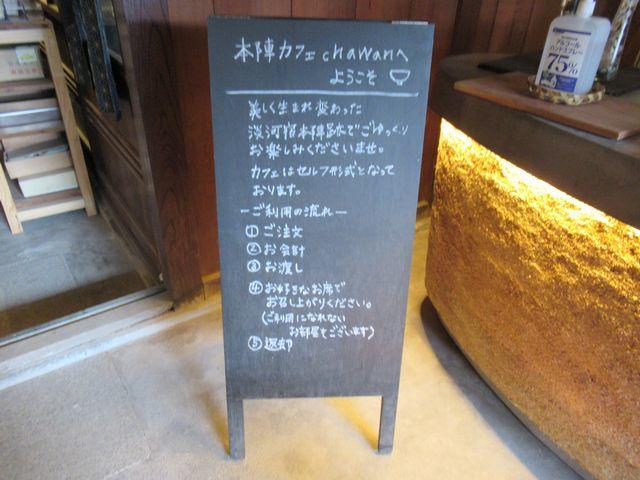 本陣カフェchawanへ
ようこそ
美しく生まれ変わった
淡河宿本陣跡でごゆっくり
お楽しみくださいませ。
カフェはセルフ形式となって
おります。
ーご利用の流れー
①ご注文
②お会計
③お渡し
④お好きなお席で
お召し上がりください。
(ご利用になれない
お部屋もございます)
⑤返却
アルコール
ハンドスプレー
75%